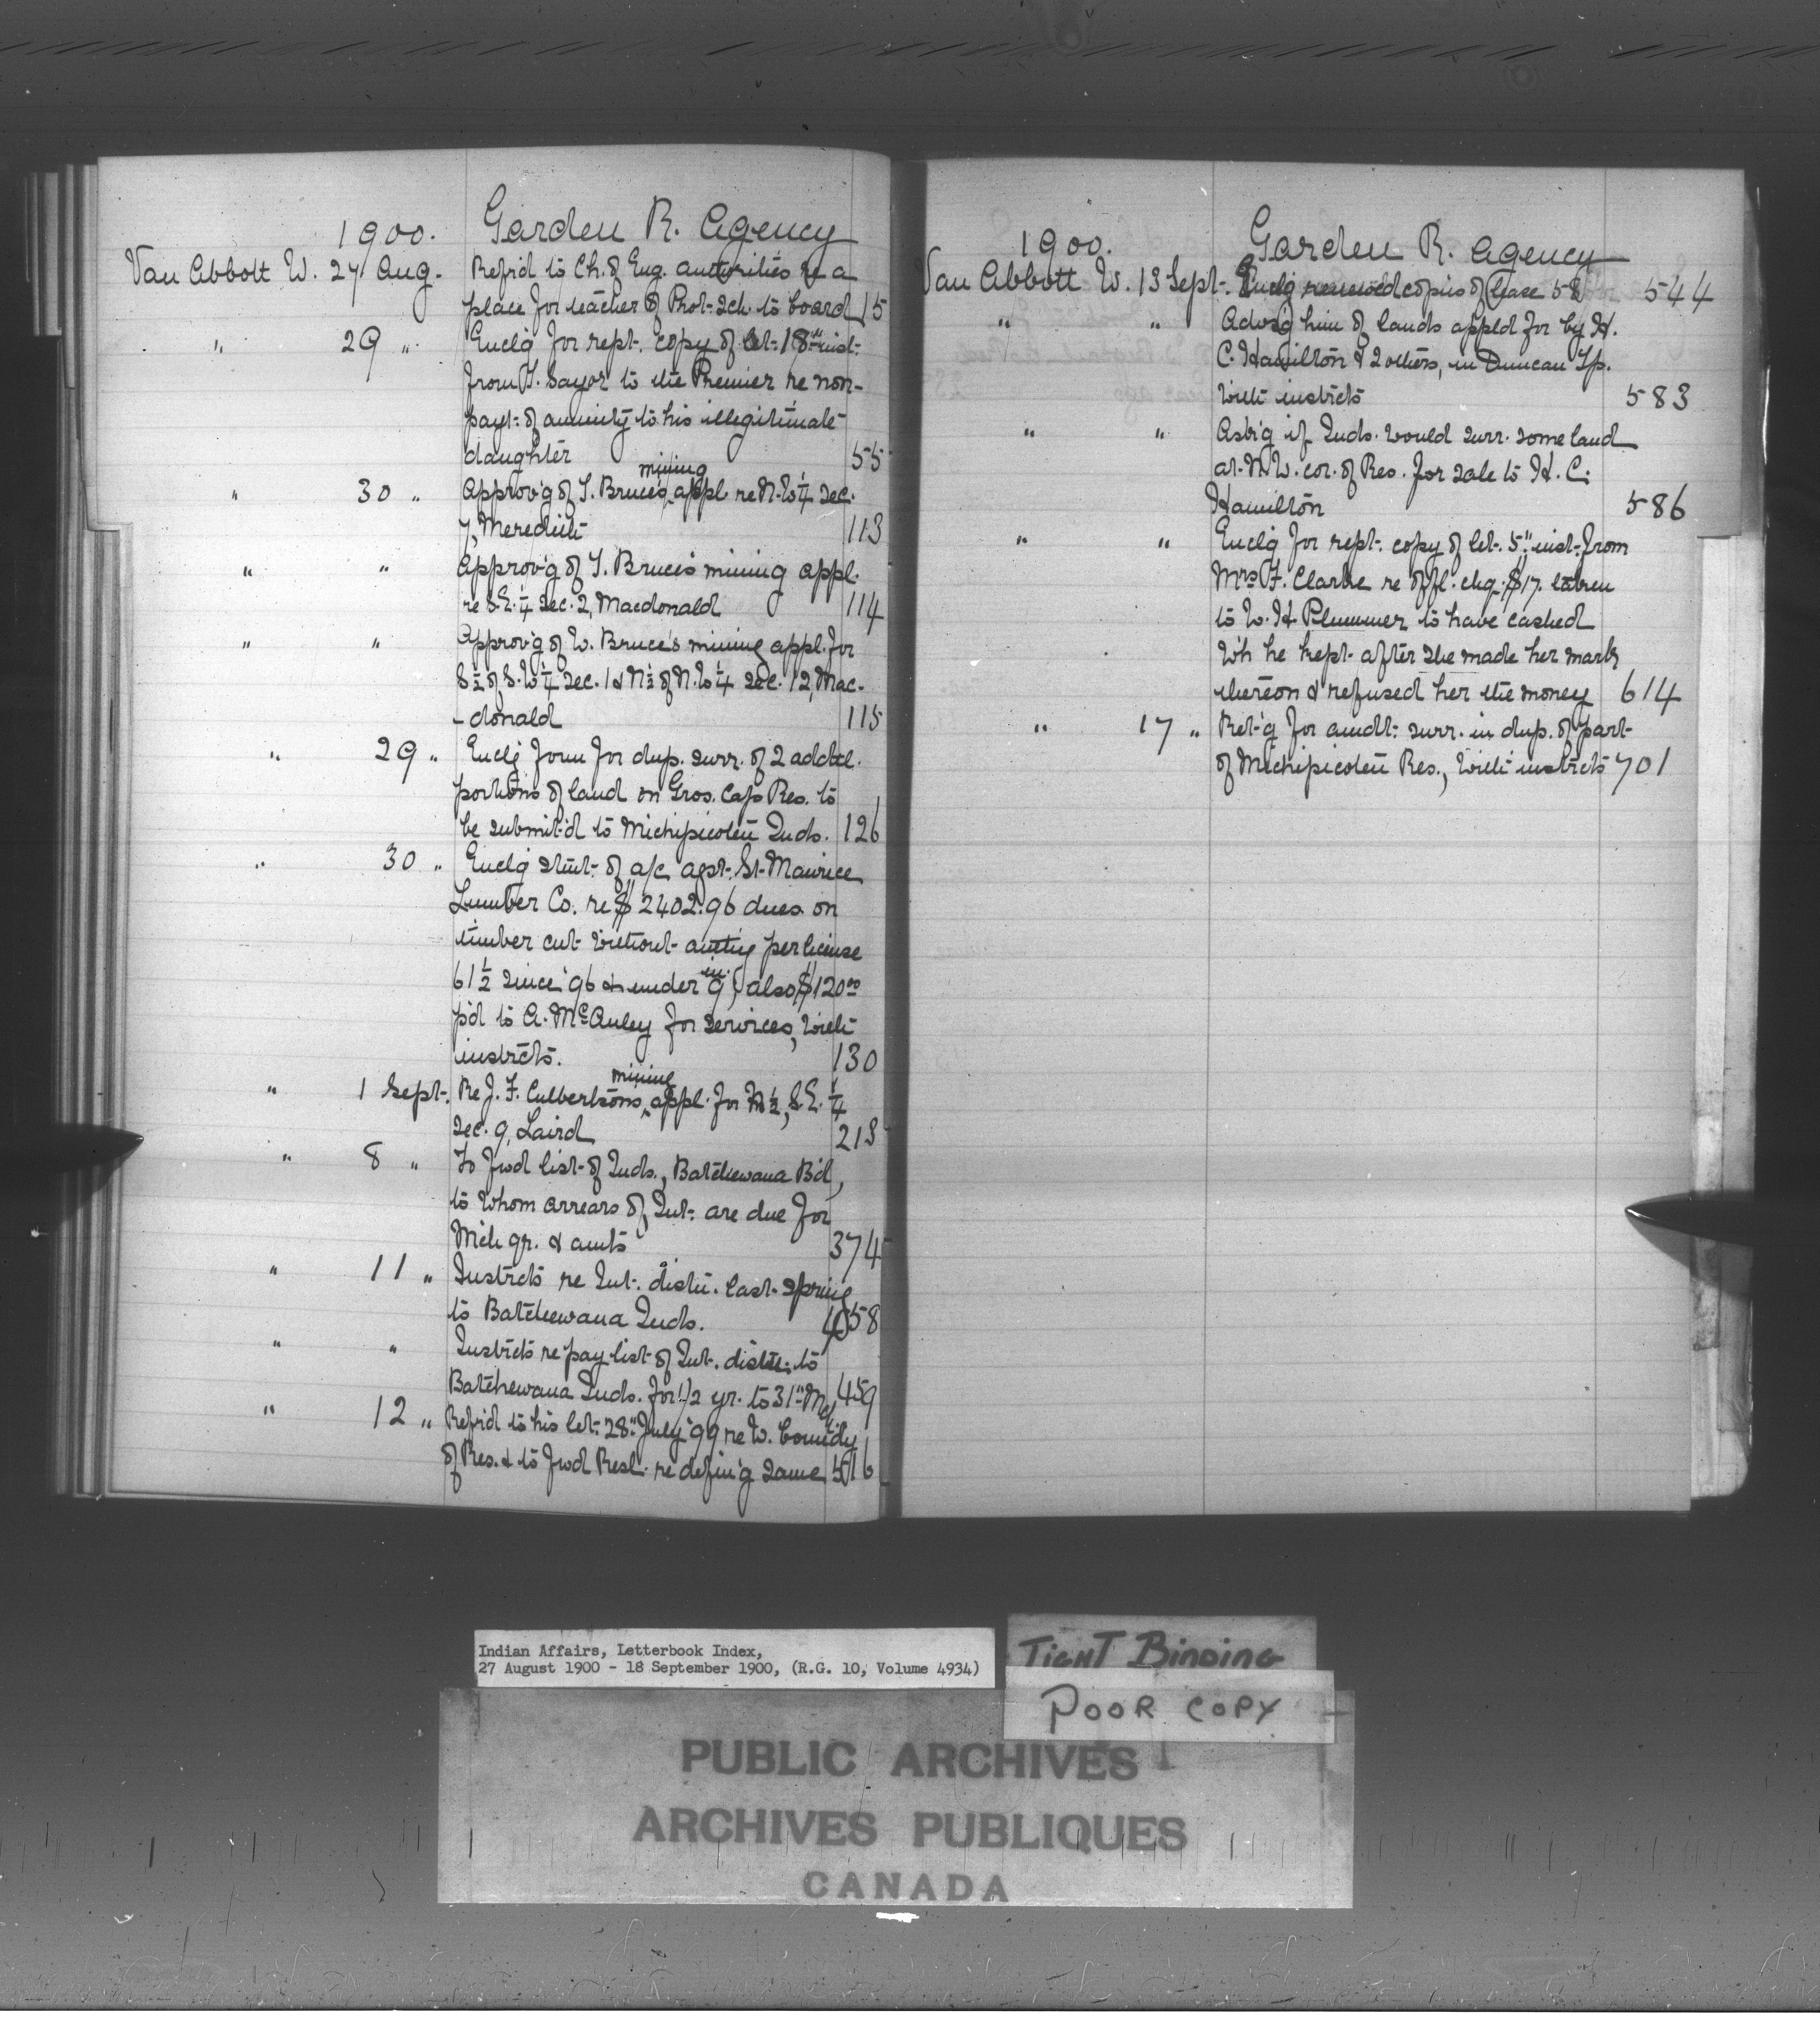 1900. Garden R. Agency
Van Abbott W. 27 Aug. Refr'd to Ch. of Eng. authorities re a
place for teacher of Prot. Sch. to board 15
" 29 " Encl'g for rept. copy of let. 18" inst.
from T. Sayor to the Premier re non-
payt. of annuity to his illegitimate
daughter 55
" 30 " Approv'g of T. Bruce's mining appl. re N.W ¼ Sec.
7, Meredith 113
" " Approv'g of T. Bruce's mining appl.
re S.E. ¼ Sec. 2, Macdonald 114
" " Approv'g of W. Bruce's mining appl. for
S ½ of S.W ¼ Sec. 1 & N ½ of N.W ¼ Sec. 12, Mac-
-donald 115
" 29 " Encl'g form for dup. surr. of 2 addtl.
portions of land on Gros. Cap Res. to
be submit'd to Michipicoten Inds. 126
" 30 " Encl'g stmt. of a/c agst. St. Maurice
Lumber Co. re $2402.96 dues on
timber cut without authy per license
61 ½ since '96 & under 9 in. also $120.00
p'd to A. McAuley for services, with
instrcts. 130
" 1 Sept. Re J. F. Culbertson's mining appl. for N ½, S.E. ¼
Sec. 9, Laird 213
" 8 " To fwd list of Inds., Batchewana B'd,
to whom arrears of Int. are due for
Mch qr. & amts 374
" 11 " Instrcts re Int. distn. last spring
to Batchewana Inds. 458
" " Instrcts re pay list of Int. distn. to
Batchewana Inds. for 1/2 yr. to 31" Mch 459
" 12 " Refr'd to his let. 28" July '99 re W. boundy
of Res. & to fwd Resl. re defin'g same 516
1900. Garden R. Agency
Van Abbott W. 13 Sept. Encl'g renewed copies of lease 58 544
" " Advs'g him of lands appl'd for by H.
C. Hamilton & 2 others, in Duncan Tp.
with instrcts 583
" " Ask'g if Inds. would surr. some land
at N.W. cor. of Res. for sale to H. C.
Hamilton 586
" " Encl'g for rept. copy of let. 5" inst. from
Mrs F. Clarke re offl. chq. $17. taken
to W. H. Plummer to have cashed
wh he kept after she made her mark
thereon & refused her the money 614
" 17 " Ret'g for amdt. surr. in dup. of part
of Michipicoten Res., with instrcts 701
Indian Affairs, Letterbook Index,
27 August 1900 - 18 September 1900, (R.G. 10, Volume 4934)
TIGHT BINDING
POOR COPY
PUBLIC ARCHIVES
ARCHIVES PUBLIQUES
CANADA